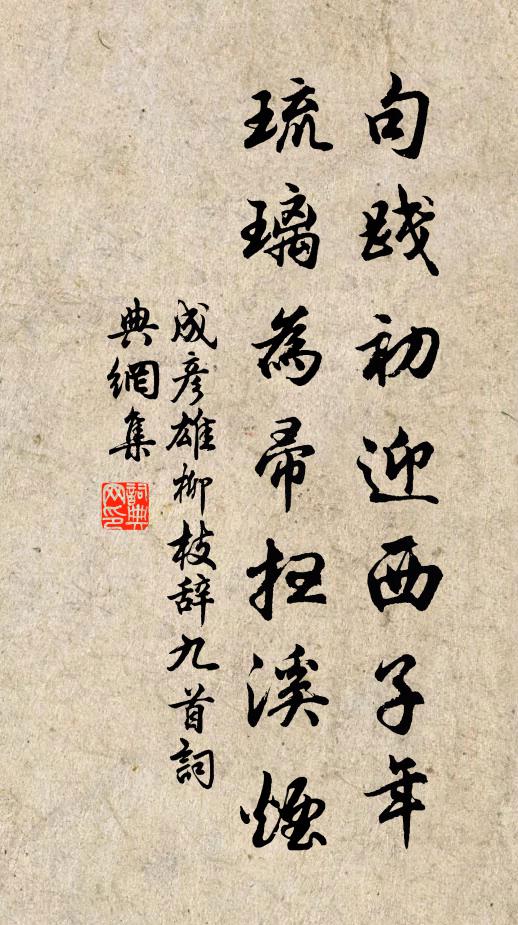 句践初迎西子年
琉璃為帚扫溪煙
成彦雄柳枝辞九首詞
典網集
詞典
网印